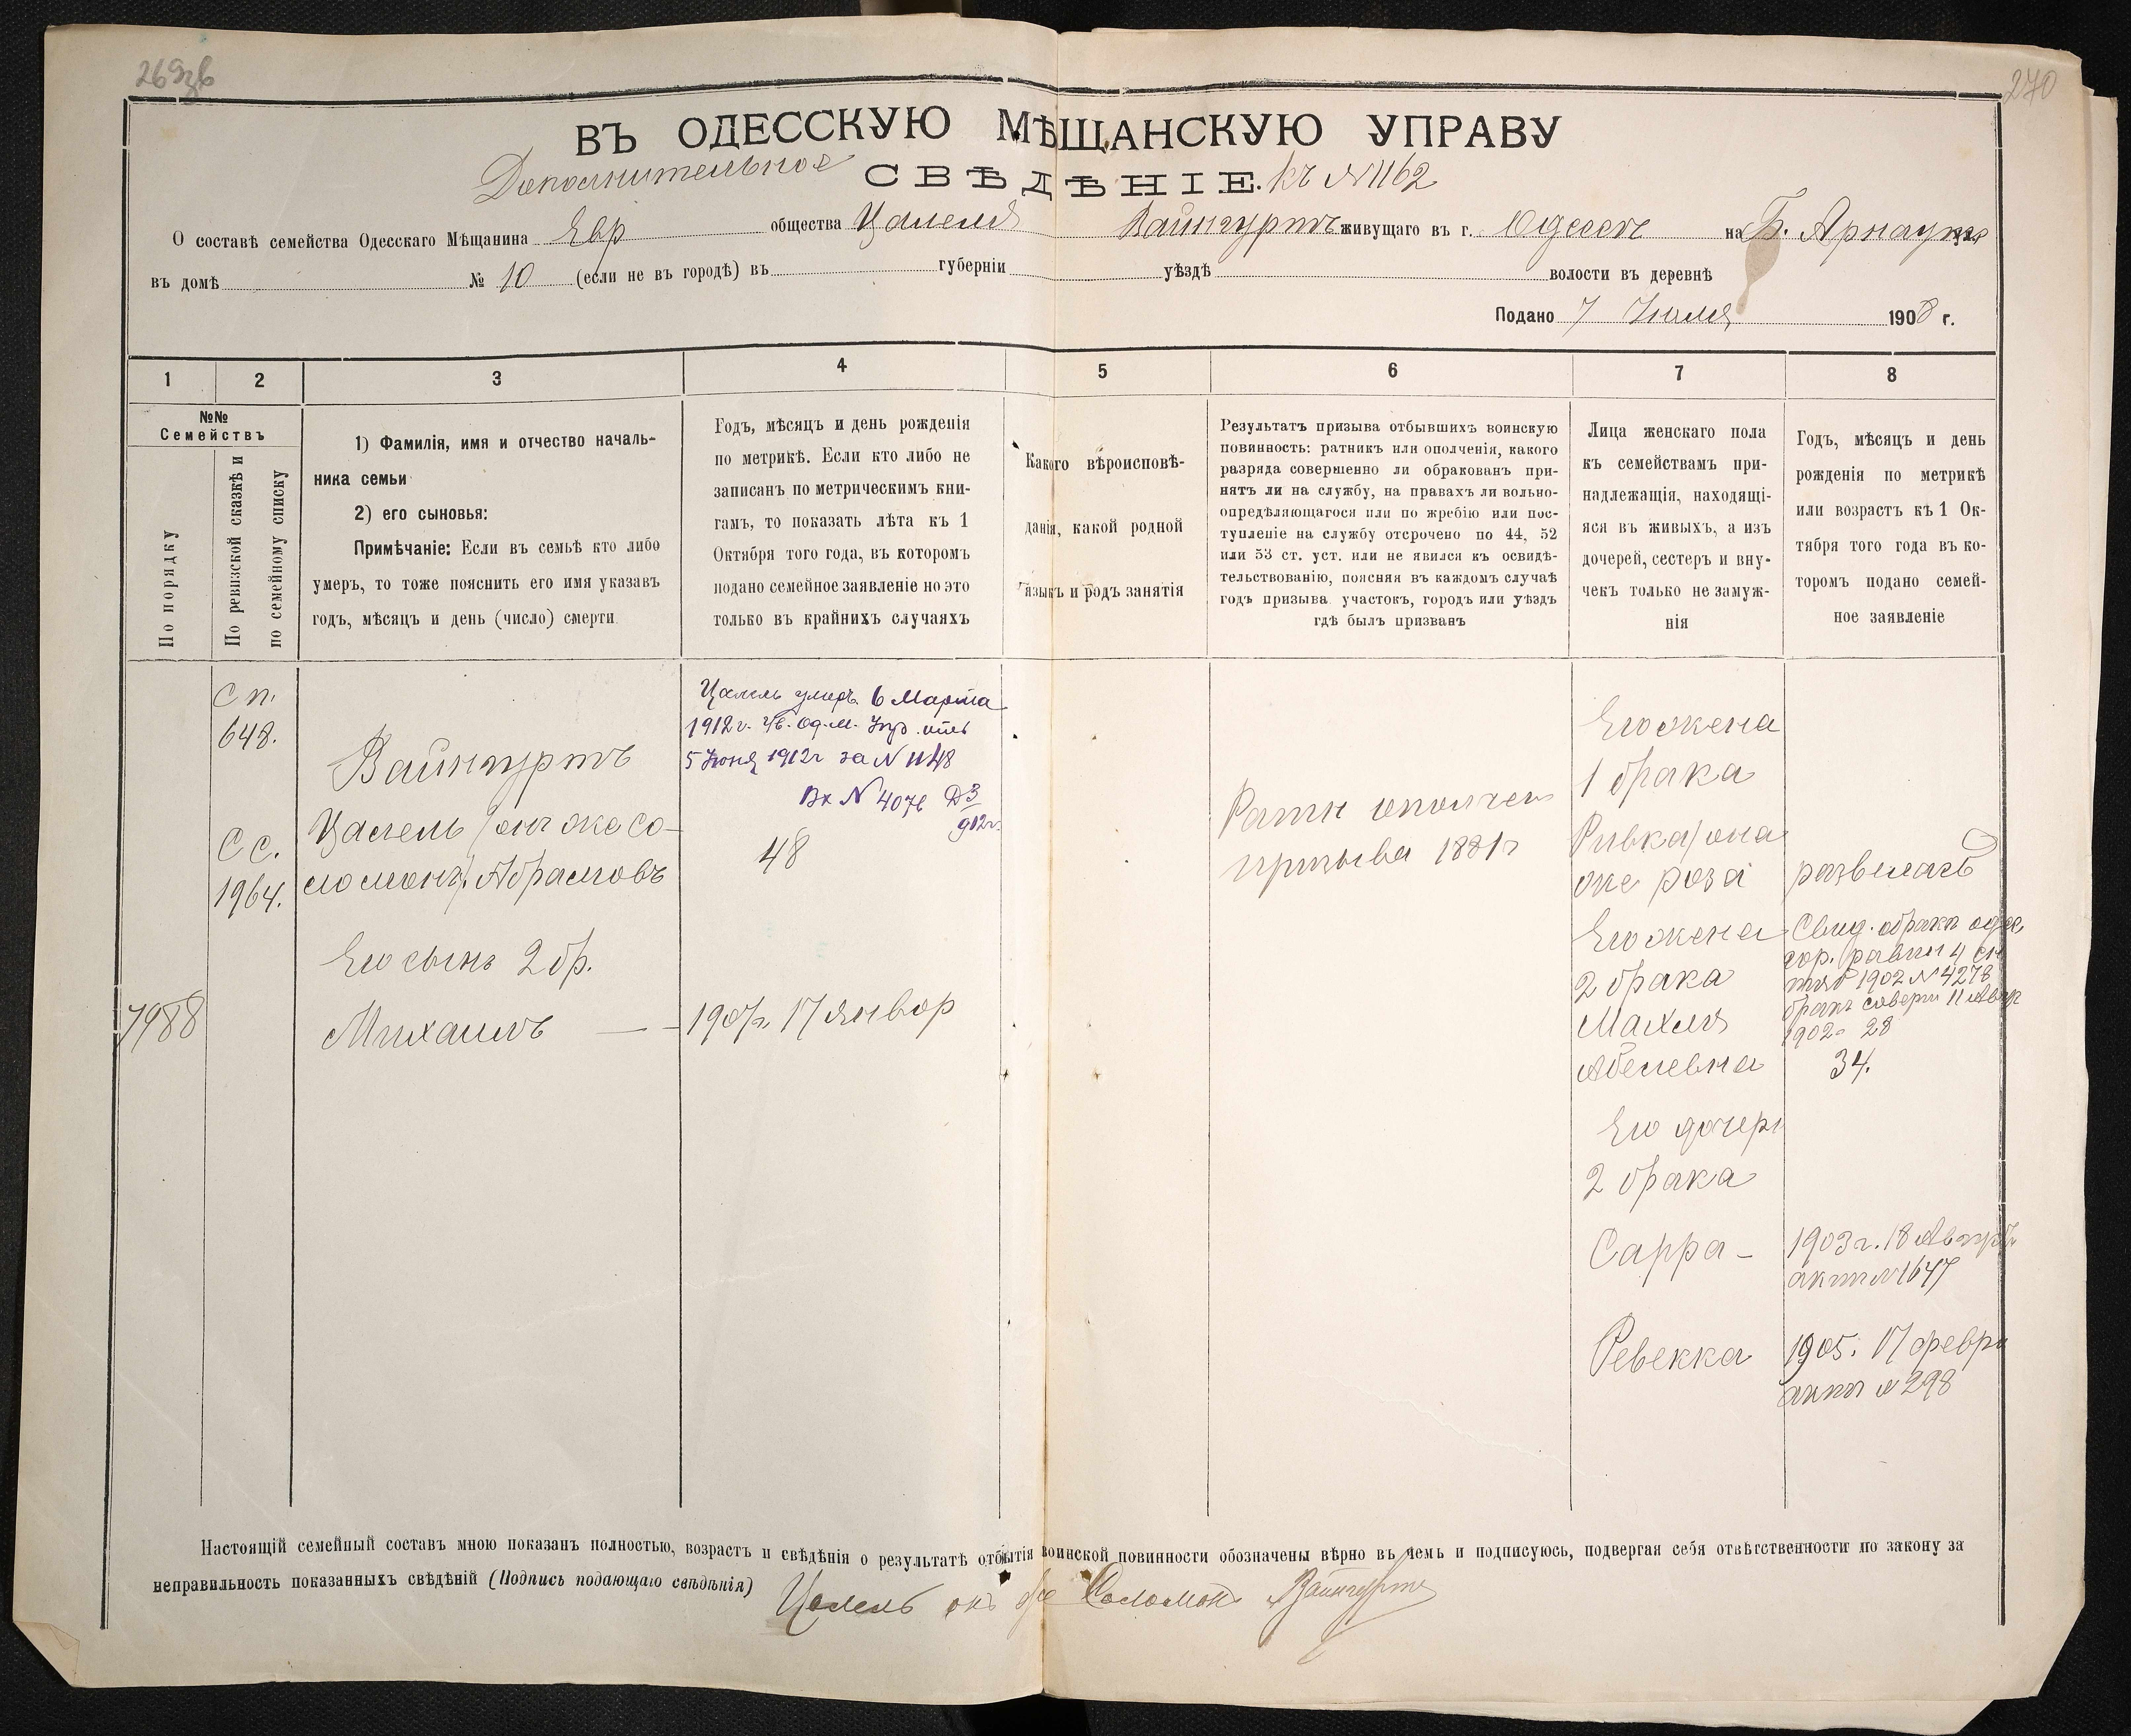 270
ВЪ ОДЕССКУЮ МѢЩАНСКУЮ УПРАВУ
Дополнительное СВѢДѢНІЕ. къ №1162
О составѣ семейства Одесскаго Мѣщанина Евр общества Цалеля Вайнгуртъ живущаго въ г. Одессѣ на Б. Арнаутс
въ домѣ № 10 (если не въ городѣ) въ губерніи уѣздѣ волости въ деревнѣ
Подано 7 Іюля 1908 г.
1 2 3 4 5 6 7 8
№№
Семействъ
По порядку
По ревизской сказкѣ и
по семейному списку
1) Фамилія, имя и отчество началь-
ника семьи
2) его сыновья:
Примѣчаніе: Если въ семьѣ кто либо
умеръ, то тоже пояснить его имя указавъ
годъ, мѣсяцъ и день (число) смерти
Годъ, мѣсяцъ и день рожденія
по метрикѣ. Если кто либо не
записанъ по метрическимъ кни-
гамъ, то показать лѣта къ 1
Октября того года, въ которомъ
подано семейное заявленіе но это
только въ крайнихъ случаяхъ
Какого вѣроисповѣ-
данія, какой родной
языкъ и родъ занятія
Результатъ призыва отбывшихъ воинскую
повинность: ратникъ или ополченія, какого
разряда совершенно ли обракованъ при-
нятъ ли на службу, на правахъ ли вольно-
опредѣляющагося или по жребію или пос-
тупленіе на службу отсрочено по 44, 52
или 53 ст. уст. или не явился къ освидѣ-
тельствованію, поясняя въ каждомъ случаѣ
годъ призыва участокъ, городъ или уѣздъ
гдѣ былъ призванъ
Лица женскаго пола
къ семействамъ при-
надлежащія, находящі-
яся въ живыхъ, а изъ
дочерей, сестеръ и вну-
чекъ только не замуж-
нія
Годъ, мѣсяцъ и день
рожденія по метрикѣ
или возрастъ къ 1 Ок-
тября того года въ ко-
торомъ подано семей-
ное заявленіе
Сп.
648.
Сс.
1964.
7988
Вайнгуртъ
Цалель (онъ же Со-
ломонъ) Абрамовъ
Его сынъ 2 бр.
Михаилъ
Цалель умеръ 6 Марта
1912 г. Ув. Од. М. Упр. отъ
5 Іюня 1912 г за N 1148
Вх N 4076
912 г.
48
1907 г. 17 Январ
Ратн ополчен
призыва 1881 г
Его жена
1 брака
Ривка (она
же Роза
Его жена
2 брака
Махля
Абелевна
Его дочери
2 брака
Сарра -
Ревекка
развелась
Свид. о бракѣ одес
гор. равви 4 сен
тяб 1902 N 4278
бракъ соверш 11 Авг
1902 28
34.
1903 г. 18 Август
актъ N 1647
1905. 17 февра
актъ N 298
Настоящій семейный составъ мною показанъ полностью, возрастъ и свѣдѣнія о результатѣ отбытія воинской повинности обозначены вѣрно въ чемъ и подписуюсь, подвергая себя отвѣтственности по закону за
неправильность показанныхъ свѣдѣній (Подпись подающаго свѣдѣнія) Цалель онъ же Соломонъ Вайнгуртъ